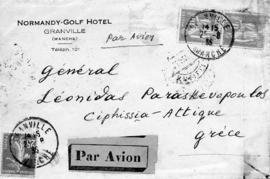 NORMANDY-GOLF HOTEL
GRANVILLE
(MANCHE)
Téléph. 121
Par Avion
GRANVILLE
MANCHE
Général
Léonidas Paraskevopoulos
Ciphissia-Attique
Grèce
Par Avion
GRANVILLE
MANCHE